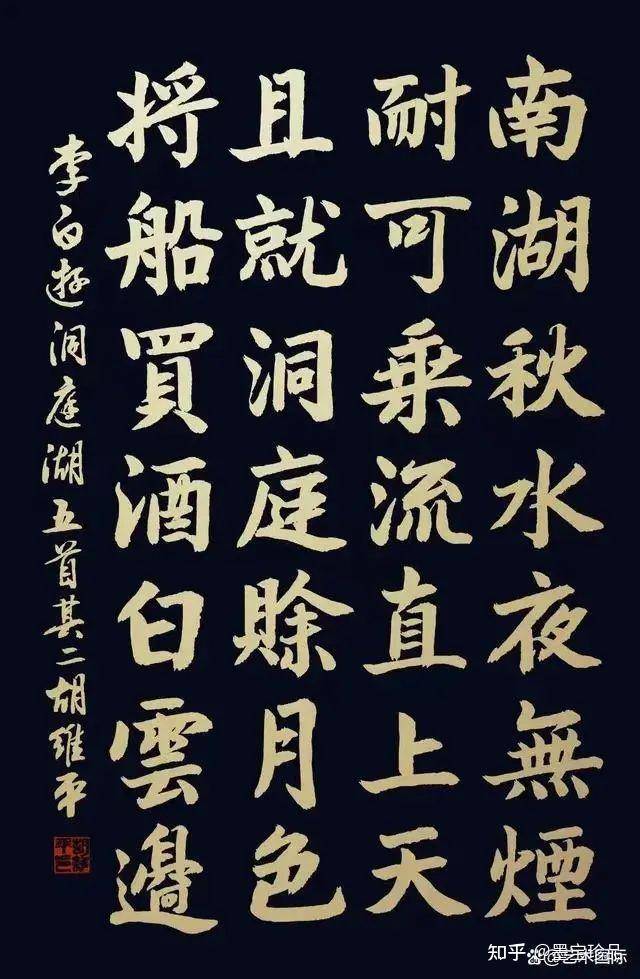 南湖秋水夜無煙
耐可乘流直上天
且就洞庭賒月色
将船買酒白雲邊
李白遊洞庭湖五首其二胡維平
知乎 @墨宝珍品